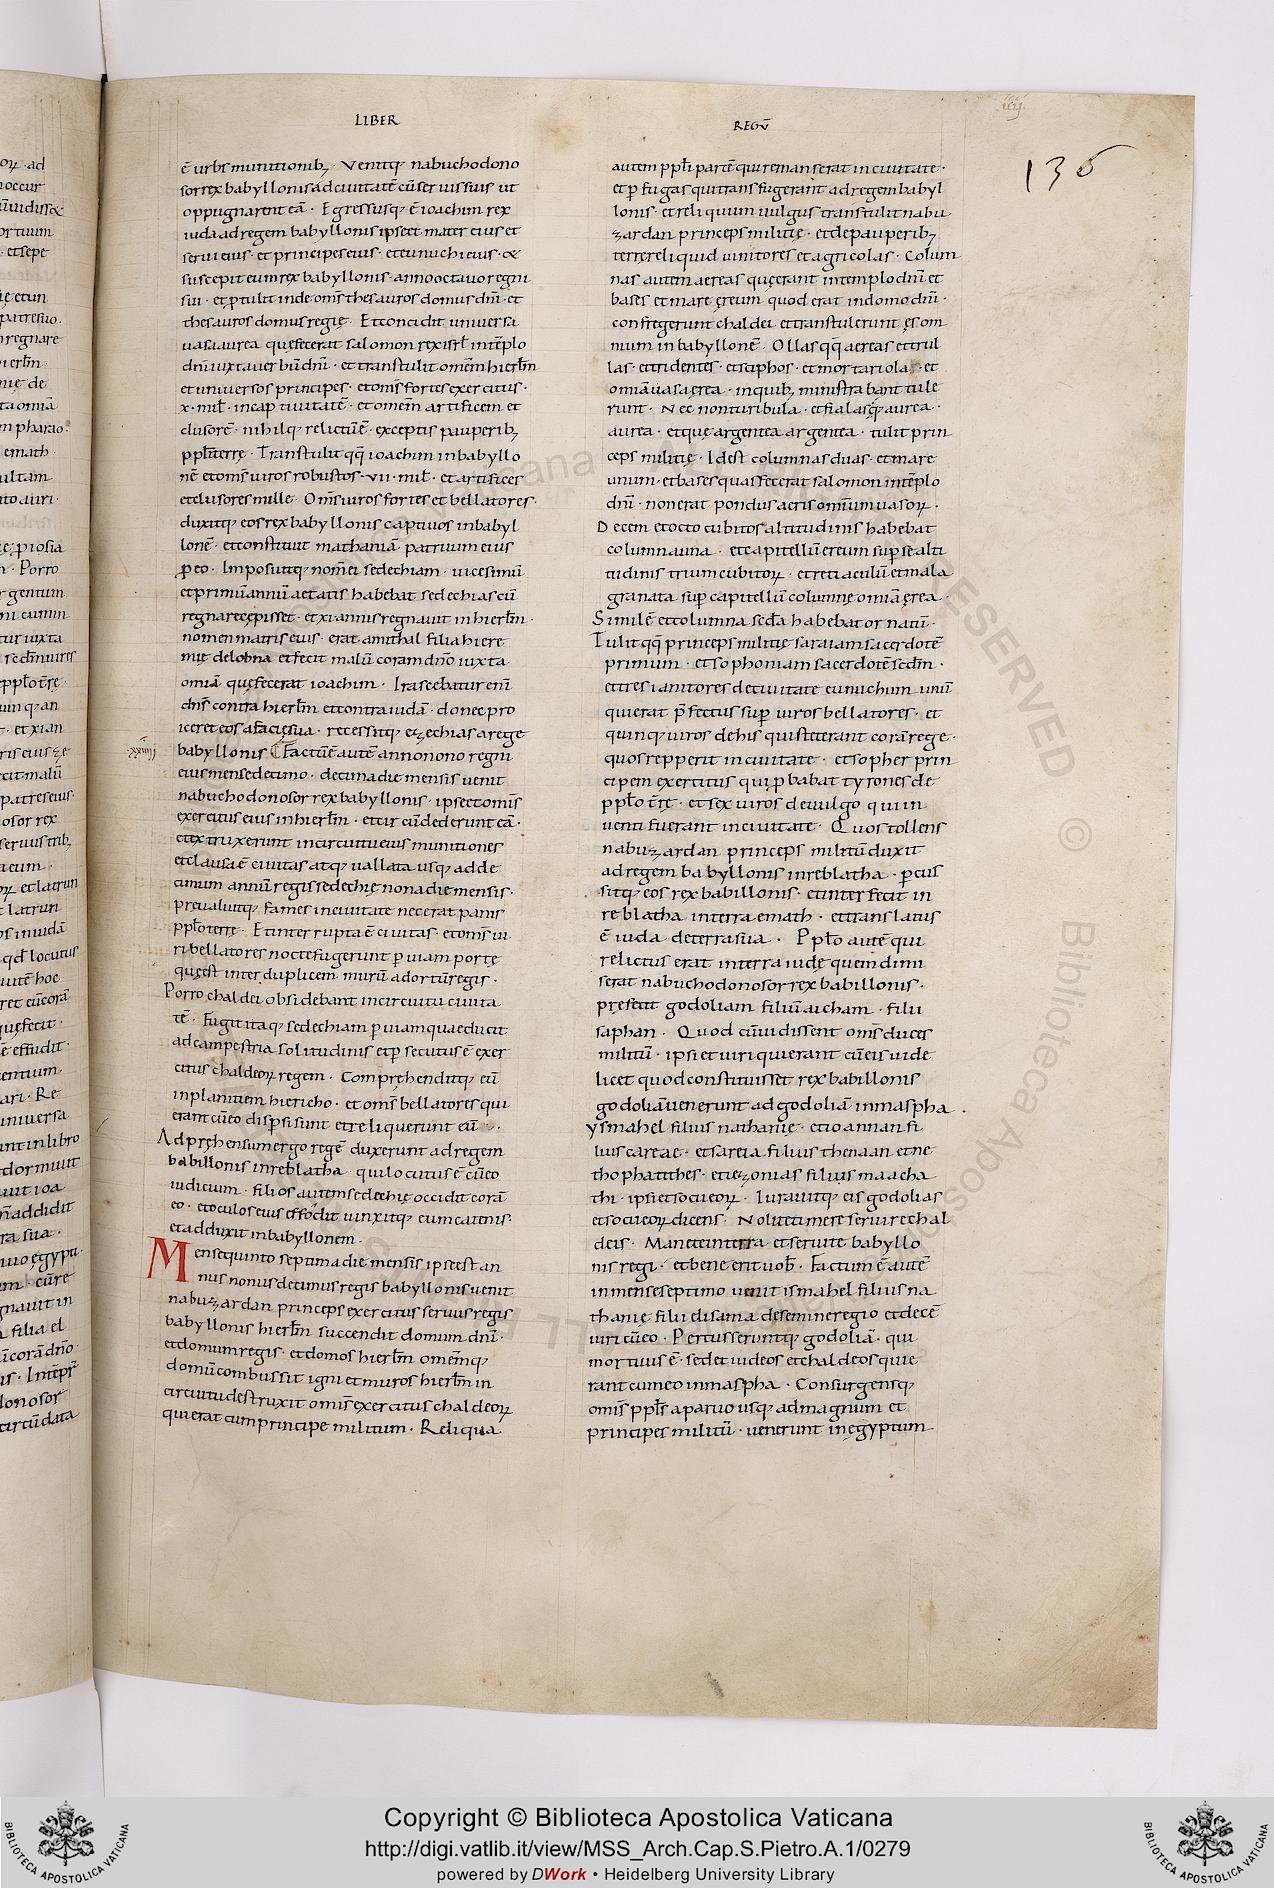 LIBER
REGŪ
136
ē urbs munitionib; · Venitq; nabuchodono
sor rex babyllonis ad ciuitatē cū seruis suis ut
oppugnarent eā · Egressusq; ē ioachim rex
iuda ad regem babyllonis ipse et mater eius et
serui eius · et principes eius · et eunuchi eius · &
suscepit eum rex babyllonis · anno octauo regni
sui · et ꝑtulit inde om̄s thesauros domus dn̄i · et
thesauros domus regię · Et concidit uniuersa
uasa aurea quę fecerat salomon rex isrł in tēplo
dn̄i iuxta uerbū dn̄i · et transtulit omēm hierłm
et uniuersos principes · et om̄s fortes exercitus ·
x · mił · in captiuitatē · et omēm artificem et
clusorē · nihilq; relictū ē · exceptis pauperib;
ppłi terrę · Transtulit qq̨ ioachim in babyllo
nē et om̄s uiros robustos · vii · mił · et artifices
et clusores mille · Om̄s uiros fortes et bellatores ·
duxitq; eos rex babyllonis captiuos in babyl
lonē · et constituit mathaniā patruum eius
ꝑ eo · Imposuitq; nom̄ ei sedechiam · uicesimū
et primū annū aetatis habebat sedechias cū
regnare cępisset · et xi annis regnauit in hierłm ·
nomen matris eius · erat amithal filia hiere
mię de lobna et fecit malū coram dn̄o iuxta
omīa quę fecerat ioachim · Irascebatur enī
dn̄s contra hierłm et contra iudā · donec pro
iceret eos a facię sua · recessitq; ezechias a rege
babyllonis Factū ē autē anno nono regni
eius mense decimo · decima die mensis uenit
nabuchodonosor rex babyllonis · ipse et om̄is
exercitus eius in hierłm · et circūdederunt eā ·
et extruxerunt in circuitu eius munitiones
et clausa ē ciuitas atq; uallata usq; ad de
cimum annū regis sedechię nona die mensis ·
preualuitq; fames in ciuitate nec erat panis
ppło terrę · Et interrupta ē ciuitas · et om̄s ui
ri bellatores nocte fugerunt ꝑ uiam portę
quę est inter duplicem murū ad ortū regis ·
Porro chaldei obsidebant in circuitu ciuita
tē · Fugit itaq; sedechiam ꝑ uiam quae ducit
ad campestria solitudinis et ꝑsecutus ē exer
citus chaldeoꝝ regem · Comprehenditq; eū
in planitiem hiericho · et om̄s bellatores qui
erant cū eo disꝑsi sunt et reliquerunt eū ·
Adprehensum ergo regē duxerunt ad regem
babillonis in reblatha · qui locutus ē cū eo
iudicium · filios autem sedechię occidit corā
eo · et oculos eius effodit uinxitq; eum catenis ·
et adduxit in babyllonem ·
Mense quinto septima die mensis ipse est an
nus nonus decimus regis babyllonis uenit
nabuzardan princeps exercitus seruus regis
babyllonis hierłm succendit domum dn̄i ·
et domum regis · et domos hierłm omēmq;
domū combussit igni et muros hierłm in
circuitu destruxit om̄is exercitus chaldeoꝝ
qui erat cum principe militum · Reliqua
·xxiiii
autem ppłi partē qui remanserat in ciuitate ·
et ꝑfugas qui transfugerant ad regem babyl
lonis · et reliquum uulgus transtulit nabu
zardan princeps militię · et de pauperib;
terre reliquid uinitores et agricolas · Colum
nas autem aereas que erant in templo dn̄i et
bases et mare ęreum quod erat in domo dn̄i ·
confregerunt chaldei et transtulerunt ęs om
mum in babyllonē · Ollas qq̨ aereas et trul
las · et tridentes · et sciphos · et mortariola · et
omīa uasa ęrea · in quib; ministrabant tule
runt · Nec non turibula · et fialas q̨ aurea ·
aurea · et que argentea argentea · tulit prin
ceps militię · Id est columnas duas · et mare
unum · et bases quas fecerat salomon in tēplo
dn̄i · non erat pondus aeris omnium uasoꝝ ·
Decem et octo cubitos altitudinis habebat
columna una · et capitellū ereum suꝑ se alti
tudinis trium cubitoꝝ · et retiaculū et mala
granata suꝑ capitellū columnę omīa ęrea ·
Similē et columna sedā habebat ornatū ·
Tulit qq̨ princeps militię saraiam sacerdotē
primum · et sophoniam sacerdotē sedm̄ ·
et tres ianitores de ciuitate eunuchum unū
qui erat p̄fectus suꝑ uiros bellatores · et
quinq; uiros de his qui steterant corā rege ·
quos repperit in ciuitate · et sopher prin
cipem exercitus qui ꝑbabat tyrones de
ppło t̄rę · et sex uiros de uulgo qui in
uenti fuerant in ciuitate · Quos tollens
nabuzardan princeps militū duxit
ad regem babyllonis in reblatha · ꝑcus
sitq; eos rex babillonis · et interfecit in
reblatha in terra emath · et translatus
ē iuda de terra sua · Ppło autē qui
relictus erat in terra iude quem dimi
serat nabuchodonosor rex babillonis ·
prefecit godoliam filiū aicham · filii
saphan · Quod cū uidissent om̄s duces
militū · ipsi et uiri qui erant cū eis uide
licet quod constituisset rex babillonis
godoliā uenerunt ad godoliā in maspha ·
ysmahel filius nathanię · et ioannan fi
lius careae · et sareia filius thenaan et ne
thophatithes · et iezonias filius maacha
thi · ipsi et socii eoꝝ · Iurauitq; eis godolias
et sociis eoꝝ dicens · Nolite timere seruire chal
deis · Manete in terra et seruite babyllo
nis regi · et bene erit uob̄ · Factum ē autē
in mense septimo uenit ismahel filius na
thanie filii disama de semine regio et decē
uiri cū eo · Percusseruntq; godoliā · qui
mortuus ē · sed et iudeos et chaldeos qui e
rant cum eo in maspha · Consurgensq;
om̄is ppłs a paruo usq; ad magnum et
principes militū · uenerunt in ęgyptum
Copyright © Biblioteca Apostolica Vaticana
http://digi.vatlib.it/view/MSS_Arch.Cap.S.Pietro.A.1/0279
powered by DWork • Heidelberg University Library
BIBLIOTECA APOSTOLICA VATICANA
BIBLIOTECA APOSTOLICA VATICANA